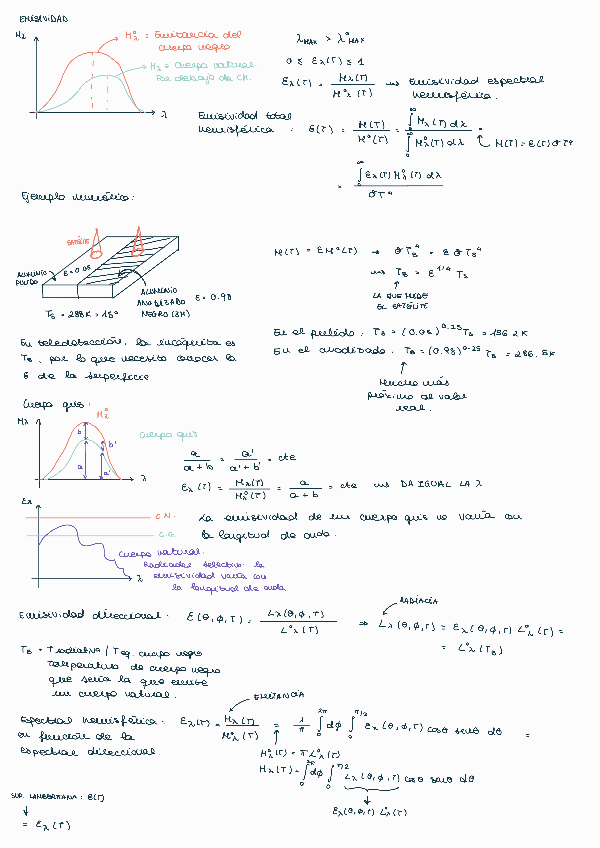 EMISIVIDAD
Mλ
M°λ = Emitancia del cuerpo negro
Mλ = Cuerpo natural
Por debajo de CN.
λ
λMAX > λ°MAX
0 ≤ Ελ(T) ≤ 1
Ελ(T) = Mλ(T) / M°λ(T) ⟿ Emisividad espectral hemisférica.
Emisividad total hemisférica : Ε(T) = M(T) / M°(T) = ∫₀^∞ Mλ(T) dλ / ∫₀^∞ M°λ(T) dλ
M(T) = Ε(T) σT⁴
= ∫₀^∞ Ελ(T) M°λ(T) dλ / σT⁴
Ejemplo numérico:
SATÉLITE
ALUMINIO PULIDO
ALUMINIO ANODIZADO NEGRO (3M)
Ε = 0.98
Ts = 288K = 15°
M(T) = Ε M°(T) → σ TB⁴ = Ε σ Ts⁴
⟿ TB = Ε^1/4 Ts
LA QUE MIDE EL SATÉLITE
En teledetección, la incógnita es
Ts, por lo que necesito conocer la
Ε de la superficie
En el anodizado. TB = (0.98)^0.25 Ts = 286.5K
Mucho más
próximo al valor
real.
Cuerpo gris:
Mλ
M°λ
b
b'
a
a'
λ
Cuerpo gris
a / a + b = a' / a' + b' = cte
Ελ(T) = Mλ(T) / M°λ(T) = a / a + b = cte ⟿ DA IGUAL LA λ
Ελ
C.N.
C.G.
λ
Cuerpo natural.
Radiador selectivo: la
emisividad varía con
la longitud de onda
La emisividad de un cuerpo gris no varía con
la longitud de onda.
Emisividad direccional: Ε(θ,φ,T) = Lλ(θ,φ,T) / L°λ(T) ⇒ Lλ(θ,φ,T) = Ελ(θ,φ,T) L°λ(T) =
= L°λ(TB)
RADIANCIA
TB = T radiativa / T eq. cuerpo negro
Temperatura de cuerpo negro
que sería la que emite
un cuerpo natural.
EMITANCIA
Espectral hemisférica:
en función de la
espectral direccional.
Ελ(T) = Mλ(T) / M°λ(T) = 1/π ∫₀^2π dφ ∫₀^π/2 Ελ(θ,φ,T) cosθ senθ dθ =
M°λ(T) = π L°λ(T)
Mλ(T) = ∫₀^2π dφ ∫₀^π/2 Lλ(θ,φ,T) cosθ senθ dθ
Ελ(θ,φ,T) L°λ(T)
SUP. LAMBERTIANA : Ε(T)
= Ελ(T)